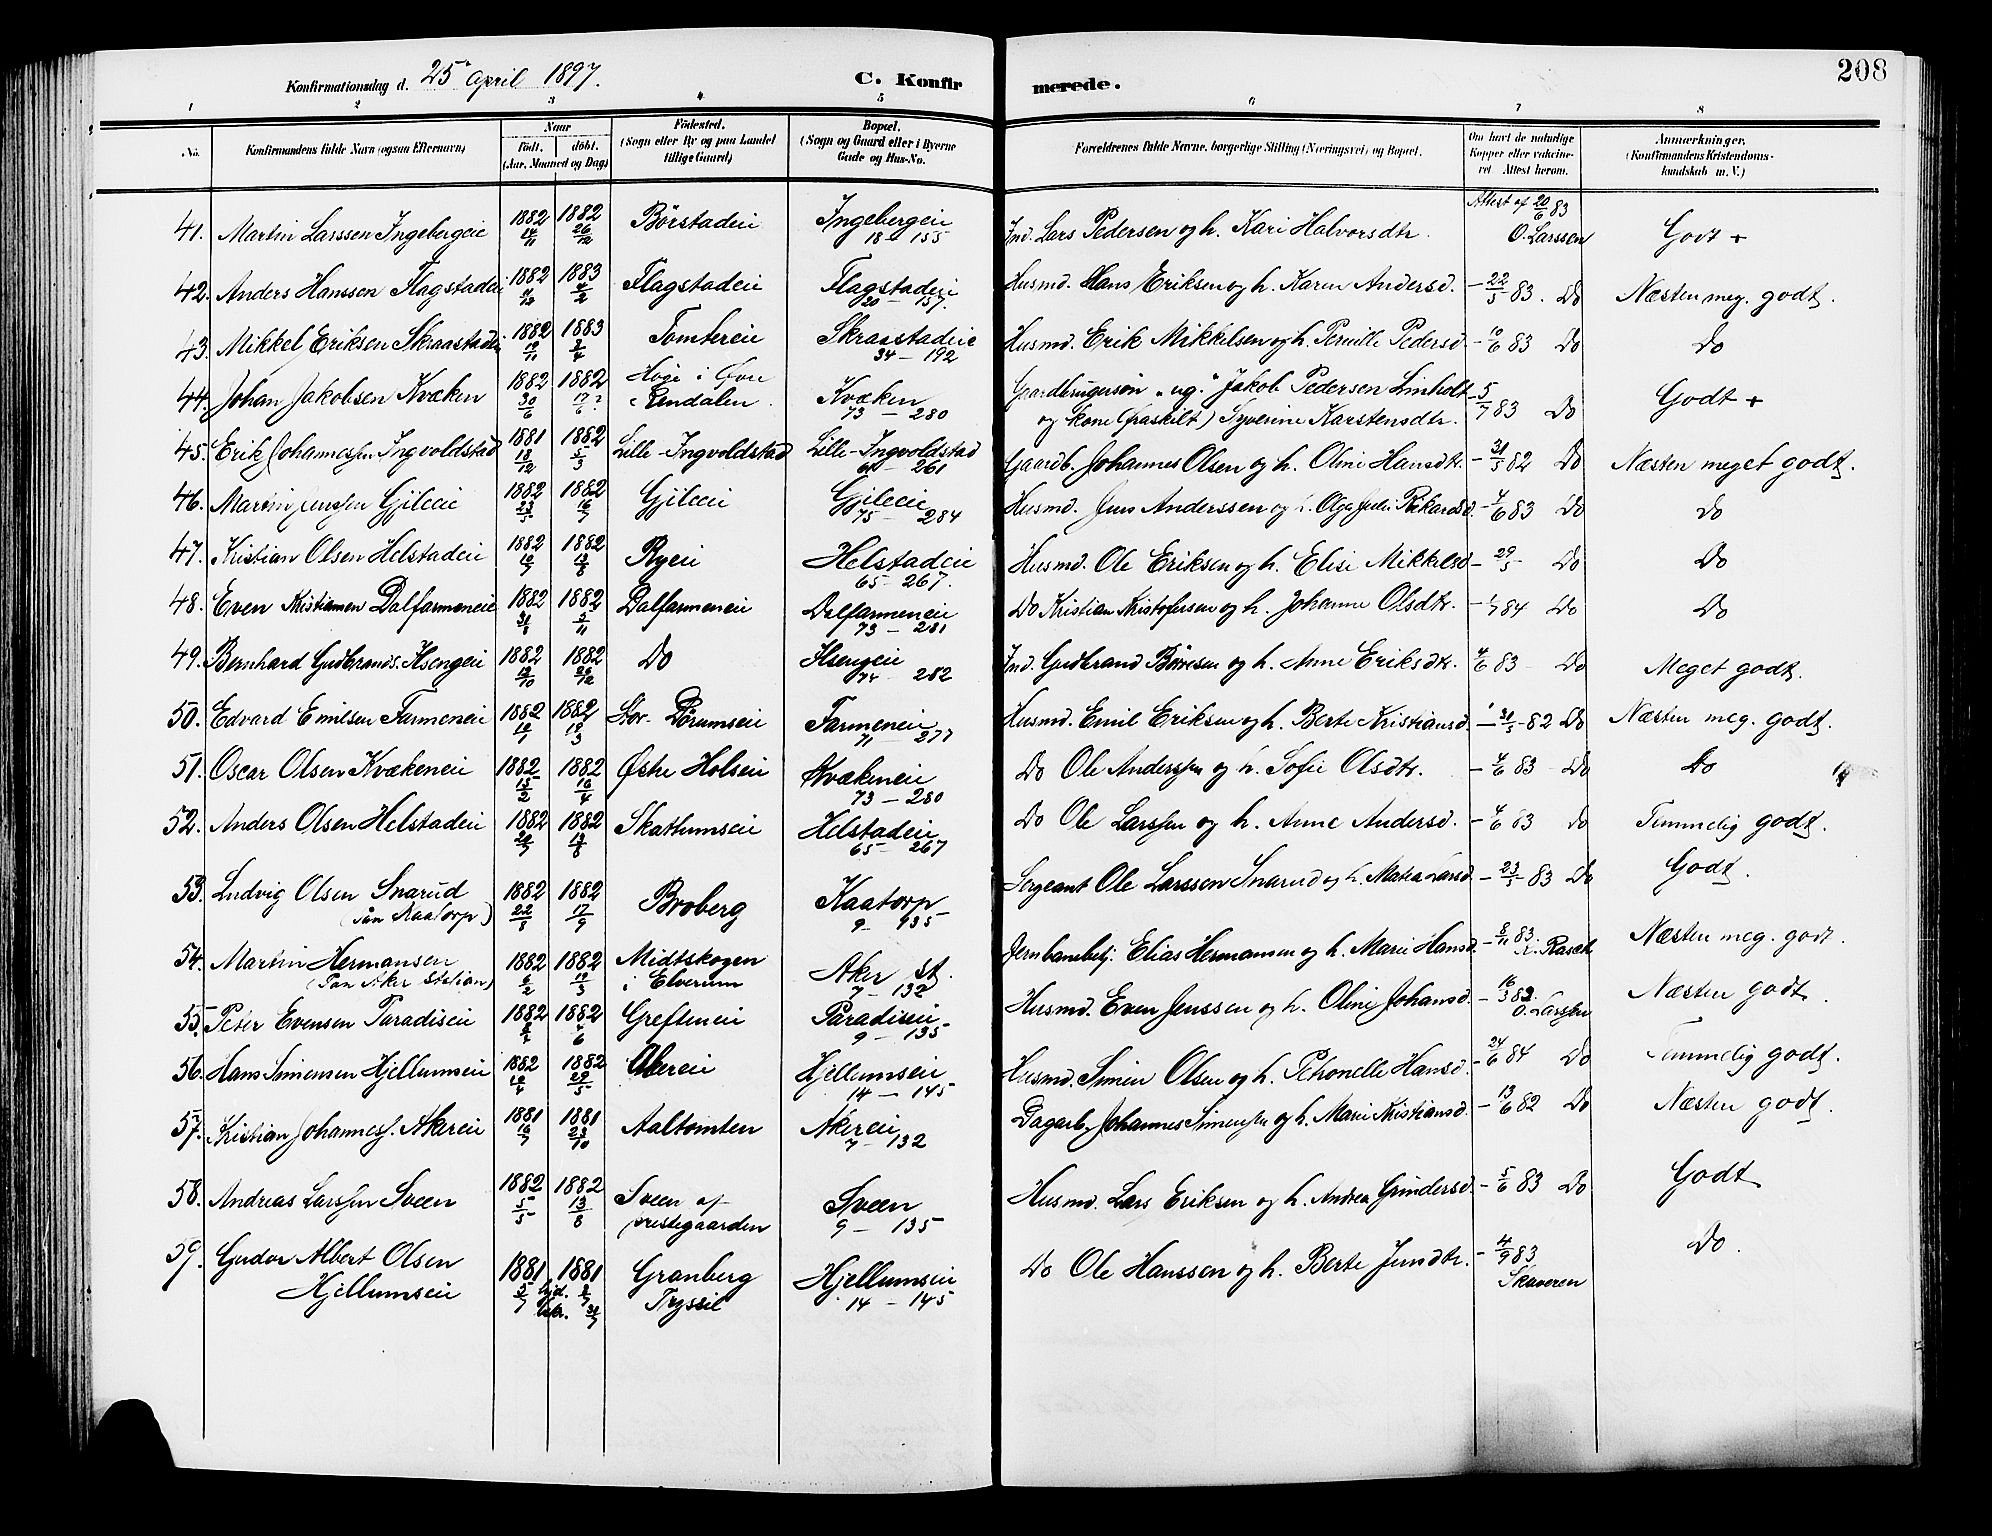 Konfirmationsdag d. 25 April 1897. C. Konfirmerede. 208
1 2 3 4 5 6 7 8
No. Konfirmandens fulde Navn (ogsaa Efternavn) Naar Födt. döbt. (Aar, Maaned og Dag) Födested. (Sogn eller By og paa Landet tillige Gaard) Bopæl. (Sogn og Gaard eller i Byerne Gade og Hus-No. Forældrenes fulde Navne, borgerlige Stilling (Næringsvei) og Bopæl. Om havt de naturlige Kopper eller vakcineret. Attest herom. Anmærkninger. (Konfirmandens Kristendomskundskab m. V.)
41. Martin Larssen Ingebergeie 1882 14/11 1882 26/12 Børstadeie Ingebergeie 18 - 155 Ind. Lars Pedersen og h. Kari Halvorsdtr. Attest af 20/6 83 O. Larssen Godt +
42. Anders Hanssen Flagstadeie 1882 1883 4/2 Flagstadeie Flagstadeie 20 - 157. Husmd. Hans Eriksen og h. Karen Andersd. - 22/5 83. Do Næsten meg. godt.
43. Mikkel Eriksen Skraastadeie 1882 1883 2/4 Tomtereie Skraastadeie 34 - 192 Husmd. Erik Mikkelsen og h. Pernille Pedersd. - 10/6 83 Do Do
44. Johan Jakobsen Kvæken 1882 30/6 1882 17/6? Hoge i Øvre Rendalen Kvæken 73 - 280 Gaardbrugersøn "ug." Jakob Pedersen Linholt
og Kone (fraskilt) Syverine Karstensdtr. - 5/7 83 Do Godt +
45. Erik Johannessen Ingvoldstad 1881 18/12 1882 5/3 Lille-Ingvoldstad Lille-Ingvoldstad 61 - 261 Gaardb. Johannes Olsen og h. Olini Hansdtr. - 31/5 82 Do Næsten meget godt.
46. Martin Jenssen Gjileie 1882 23/5 1882 16/7 Gjileie Gjileie 75 - 284 Husmd. Jens Anderssen og h. Olga Julie Rikardsd. - 4/6 83 Do Do
47. Kristian Olsen Helstadeie 1882 10/7 1882 13/8 Ryeie Helstadeie 65 - 267. Husmd. Ole Eriksen og h. Elise Mikkelsd - 29/5 - Do Do
48. Even Kristiansen Dalfarmeneie 1882 31/8 1882 5/11 Dalfarmeneie Dalfarmeneie 73 - 281 Do Kristian Kristofersen og h. Johanne Olsdtr. - 1/7 84 Do Do
49. Bernhard Gudbrands. Ilsengeie 1882 1882 26/12 Do Ilsengeie 74 - 282 Ind. Gudbrand Børresen og h. Anne Eriksdtr. 4/6 83 - Do Meget godt.
50. Edvard Emilsen Farmeneie 1882 1882 19/3 Stor-Dørumseie Farmeneie 71 - 277 Husmd. Emil Eriksen og h. Berte Kristiansd. - 31/5 - 82 Do Næsten meg. godt.
51. Oscar Olsen Kvækeneie 1882 15/2 1882 16/4 Østre Holseie Kvækeneie 73 - 280 Do Ole Anderssen og h. Sofie Olsdtr. - 4/6 83 - Do Do
52. Anders Olsen Helstadeie 1882 1882 13/8 Skattumseie Helstadeie 65 - 267 Do Ole Larssen og h. Anne Andersd. - 4/6 83 Do Temmelig godt.
53. Ludvig Olsen Snarud (paa Kaatorp) 1882 22/8 1882 17/9 Broberg Kaatorp 9 - 935 Sergeant Ole Larssen Snarud og h. Matea Larsd - 23/5 - 83 Do Godt.
54. Martin Hermansen (paa Aker station) 1882 6/2 1882 19/3 Midtskogen i Elverum Aker st. 7 - 132 Jernbanebetj. Elias Hermansen og h. Marie Hansd. - 8/11 83. Næsten meg. godt.
55. Peter Evensen Paradiseie 1882 1882 4/6 Grefteneie Paradiseie 9 - 135 Husmd. Even Jenssen og h. Olini Johansd. - 16/3 83. O. Larssen Næsten godt.
56. Hans Simensen Hjellumseie 1882 1882 29/5 Akereie Hjellumseie 14 - 145 Husmd. Simen Olsen og h. Petronelle Hansd. - 24/6 84 Do Temmelig godt.
57. Kristian Johannes. Akereie 1881 16/7 1881 23/10 Aaltomten Akereie 7 - 132 Dagarb. Johannes Simenssen og h. Marie Kristiansd. - 13/6 82 Do Næsten godt.
58. Andreas Larssen Sveen 1882 5/5 1882 13/8 Sveen af Prestegaarden Sveen 9 - 135 Husmd. Lars Eriksen og h. Andrea Gundersd - 5/6 83 Do Godt
59. Gudor Albert Olsen Hjellumseie 1881 5/7 1881 hjd. 8/7 bekr. 31/7 Granberg Trysil Hjellumseie 14 - 145 Do Ole Hanssen og h. Berte Jensdtr. - 4/9 83 Skaveren Do.